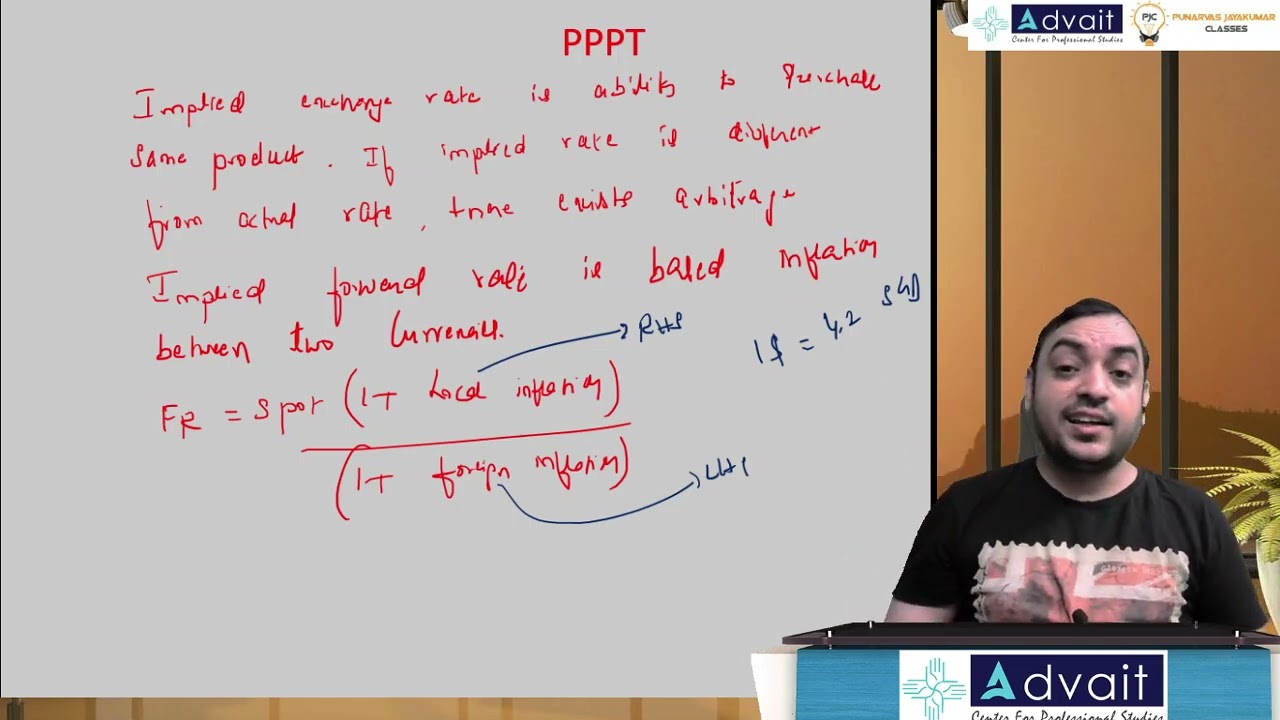 PPPT
Implied exchange rate is ability to Purchase
Same product. If implied rate is different
from actual rate, there exists arbitrage
Implied forward rate is based inflation
between two Currencies.
FR = Spot (1+ Local inflation)
(1+ foreign inflation)
RHS
LHS
1$ = 4.2 SGD
Advait
Center For Professional Studies
PJC
PUNARVAS JAYAKUMAR
CLASSES
Advait
Center For Professional Studies